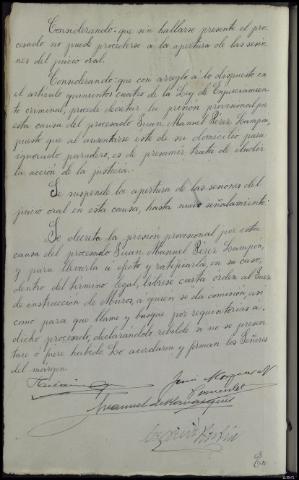 Considerando: que sin hallarse presente el pro-
cesado no puede procederse a la apertura de las sesio-
nes del juicio oral.
Considerando: que con arreglo a lo dispuesto en
el artículo quinientos cuatro de la Ley de Enjuiciamien-
to criminal, procede decretar la prisión provisional por
esta causa del procesado Juan Manuel Pérez
puesto que al ausentarse este de su domicilio para
ignorado paradero, es de presumir trata de eludir
la acción de la justicia.
Se suspende la apertura de las sesiones del
juicio oral en esta causa, hasta nuevo señalamiento.
Se decreta la prisión provisional por esta
causa del procesado Juan Manuel Pérez
y para llevarla a efecto y ratificarla, en su caso,
dentro del término legal, líbrese carta orden al Juez
de instrucción de Muros, a quien se da comisión así
como para que llame y busque por requisitorias a
dicho procesado, declarándole rebelde si no se presen-
tare o fuere habido. Lo acordaron y firman los Señores
del margen.
Manuel